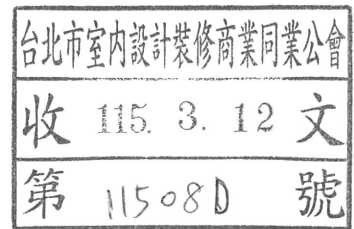 台北市室內設計裝修商業同業公會
收 115. 3. 12 文
第 11508D 號